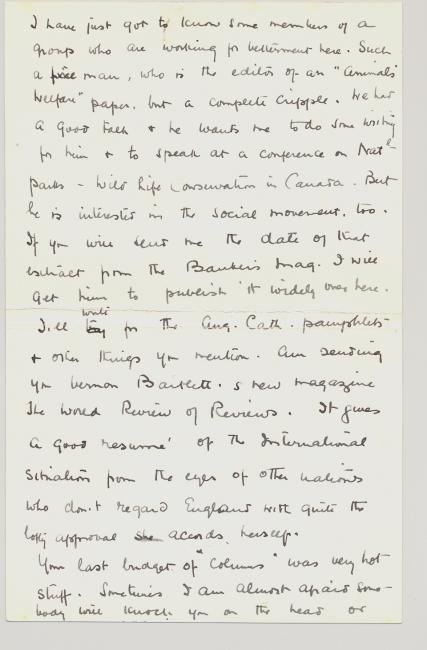 I have just got to know some members of a
group who are working for betterment here. Such
a nice man, who is the editor of an "Animals'
Welfare" paper, but a complete cripple. We had
a good talk & he wants me to do some writing
for him & to speak at a conference on Nat'l
parks - Wild Life Conservation in Canada. But
he is interested in the social movement, too.
If you will send me the date of that
extract from the Bankers Mag. I will
get him to publish it widely over here.
I'll write for the Ang. Cath. pamphlets
& other things you mention. Am sending
you Vernon Bartlett's new magazine
The World Review of Reviews. It gives
a good resumé of the International
Situation from the eyes of other nations
who don't regard England with quite the
lofty approval she accords herself.
Your last budget of "Columns" was very hot
stuff. Sometimes I am almost afraid some-
body will knock you on the head or